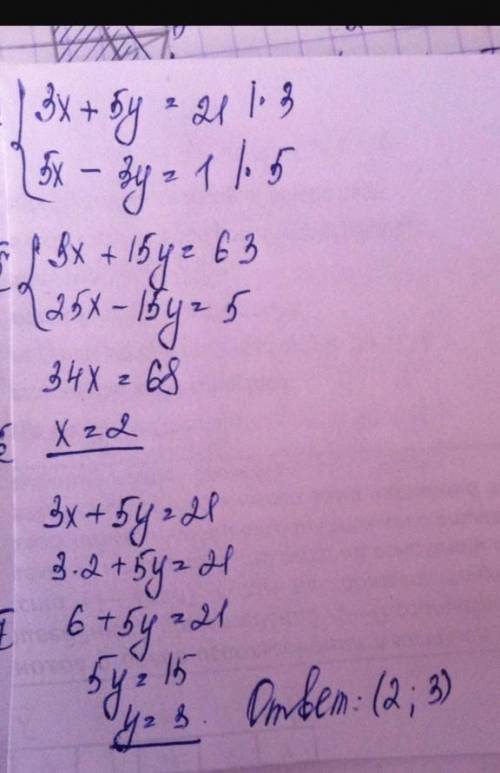 3x + 5y = 21 |· 3
5x - 3y = 1 |· 5
9x + 15y = 63
25x - 15y = 5
34x = 68
x = 2
3x + 5y = 21
3·2 + 5y = 21
6 + 5y = 21
5y = 15
y = 3.
Ответ: (2; 3)